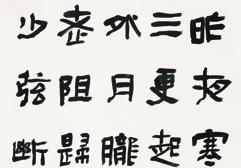 昨夜寒
三更起
外月朧
老阻歸
少弦斷